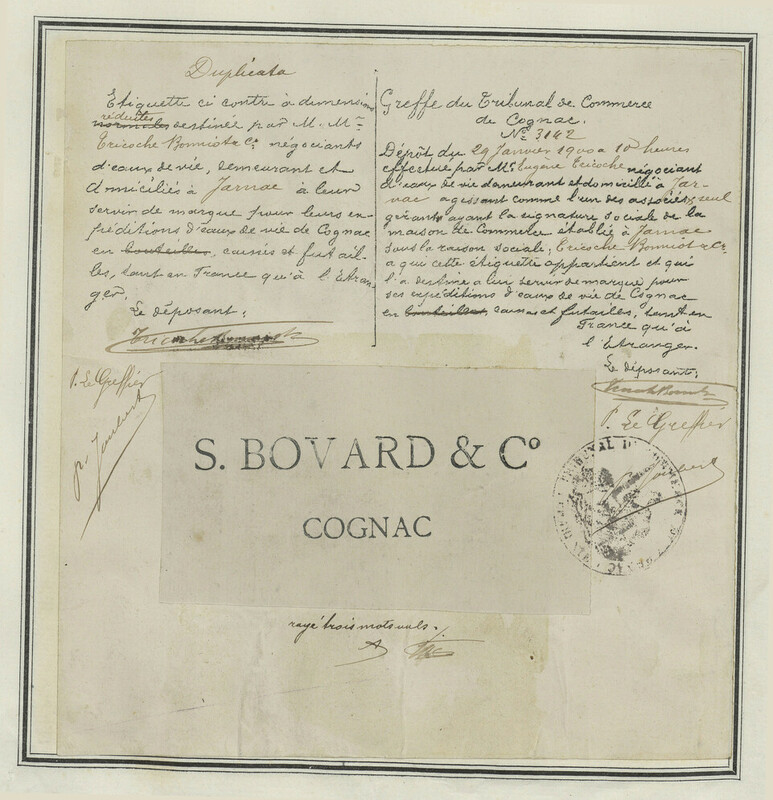 Duplicata
Etiquette ci contre à dimensions
réduites
normales destinée par M. Mrs
Tricoche Bonniot & Co négociants
d'eaux de vie, demeurant et
domiciliés à Jarnac à leur
servir de marque pour leurs ex-
péditions d'eaux de vie de Cognac
en bouteilles, caisses et futail-
les, tant en France qu'à l'Etran-
ger.
Le déposant,
Tricoche Bonniot & Co
P. Le Greffier
Joubert
Greffe du Tribunal de Commerce
de Cognac.
No 3142
Dépôt du 29 Janvier 1900 à 10 heures
effectué par Mr Eugène Tricoche négociant
d'eaux de vie demeurant et domicilié à Jar-
nac agissant comme l'un des associés, seul
gérant ayant la signature sociale de la
maison de Commerce établie à Jarnac
sous la raison sociale; Tricoche Bonniot & Co
a qui cette étiquette appartient et qui
l'a destine a lui servir de marque pour
ses expéditions d'eaux de vie de Cognac
en bouteilles, caisses et futailles, tant en
France qu'à
l'Etranger.
Le déposant,
Tricoche Bonniot & Co
P. Le Greffier
Joubert
S. BOVARD & Co
COGNAC
TRIBUNAL DE COMMERCE
rayé trois mots nuls.